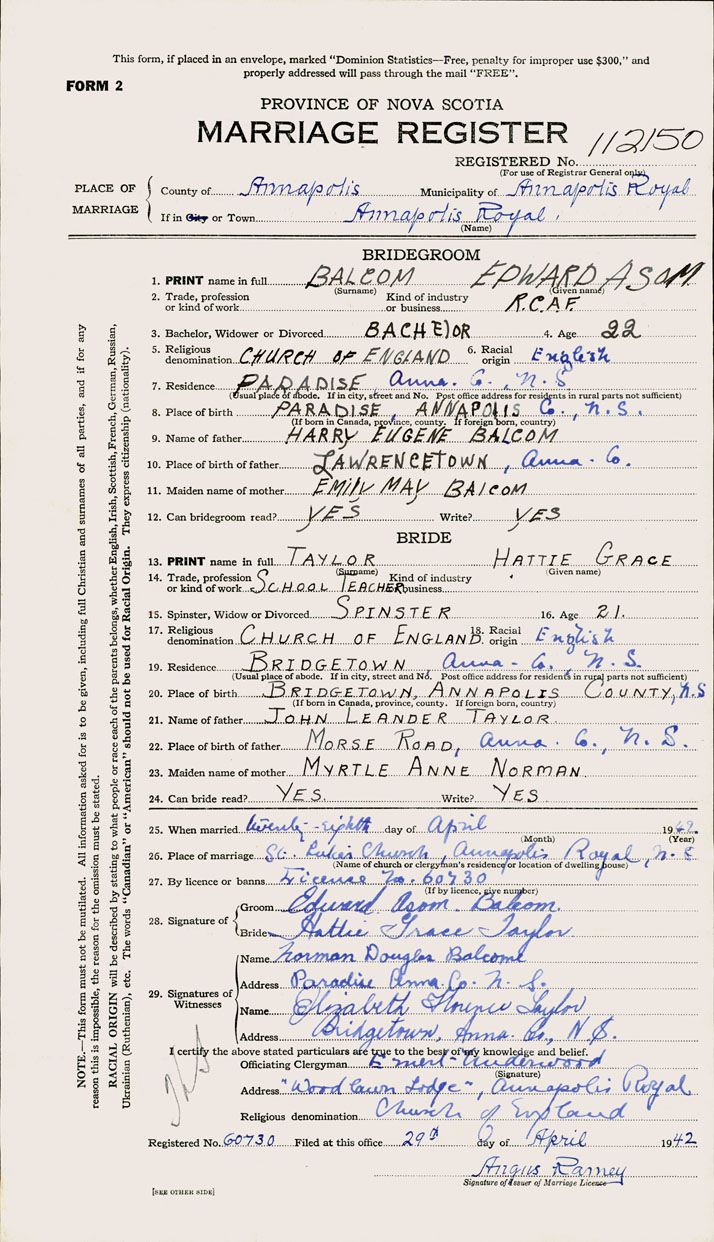 This form, if placed in an envelope, marked "Dominion Statistics—Free, penalty for improper use $300," and
properly addressed will pass through the mail "FREE".
FORM 2
PROVINCE OF NOVA SCOTIA
MARRIAGE REGISTER
112150
REGISTERED No.
(For use of Registrar General only)
PLACE OF MARRIAGE
County of Annapolis Municipality of Annapolis Royal
If in City or Town Annapolis Royal.
(Name)
BRIDEGROOM
1. PRINT name in full BALCOM EDWARD ASOM
(Surname) (Given name)
2. Trade, profession or kind of work Kind of industry or business R.C.A.F.
3. Bachelor, Widower or Divorced BACHElOR 4. Age 22
5. Religious denomination CHURCH OF ENGLAND 6. Racial origin English
7. Residence PARADISE, Anna. Co., N.S
(Usual place of abode. If in city, street and No. Post office address for residents in rural parts not sufficient)
8. Place of birth PARADISE, ANNAPOLIS Co., N.S.
(If born in Canada, province, county. If foreign born, country)
9. Name of father HARRY EUGENE BALCOM
10. Place of birth of father LAWRENCETOWN, Anna. Co.
11. Maiden name of mother EMILY MAY BALCOM
12. Can bridegroom read? YES Write? YES
BRIDE
13. PRINT name in full TAYLOR HATTIE GRACE
(Surname) (Given name)
14. Trade, profession or kind of work SCHOOL TEACHER Kind of industry business
15. Spinster, Widow or Divorced SPINSTER 16. Age 21.
17. Religious denomination CHURCH OF ENGLAND 18. Racial origin English
19. Residence BRIDGETOWN, Anna. Co., N.S.
(Usual place of abode. If in city, street and No. Post office address for residents in rural parts not sufficient)
20. Place of birth BRIDGETOWN, ANNAPOLIS COUNTY, N.S
(If born in Canada, province, county. If foreign born, country)
21. Name of father JOHN LEANDER TAYLOR
22. Place of birth of father MORSE ROAD, Anna. Co., N.S.
23. Maiden name of mother MYRTLE ANNE NORMAN
24. Can bride read? YES. Write? YES
25. When married twenty-eighth day of April 1942.
(Month) (Year)
26. Place of marriage St. Luke's Church, Annapolis Royal, N.S
(Name of church or clergyman's residence or location of dwelling house)
27. By licence or banns License No. 60730
(If by licence, give number)
28. Signature of
Groom Edward Asom Balcom.
Bride Hattie Grace Taylor
29. Signatures of Witnesses
Name Norman Douglas Balcome
Address Paradise Anna. Co. N.S.
Name Elizabeth Taylor
Address Bridgetown, Anna. Co., N.S.
I certify the above stated particulars are true to the best of my knowledge and belief.
Officiating Clergyman Underwood
(Signature)
Address "Woodlawn Lodge", Annapolis Royal
Religious denomination Church of England
Registered No. 60730 Filed at this office 29th day of April 1942
Angus Ramey
Signature of Issuer of Marriage Licence
[SEE OTHER SIDE]
NOTE.—This form must not be mutilated. All information asked for is to be given, including full Christian and surnames of all parties, and if for any
reason this is impossible, the reason for the omission must be stated.
RACIAL ORIGIN will be described by stating to what people or race each of the parents belongs, whether English, Irish, Scottish, French, German, Russian,
Ukrainian (Ruthenian), etc. The words "Canadian" or "American" should not be used for Racial Origin. They express citizenship (nationality).